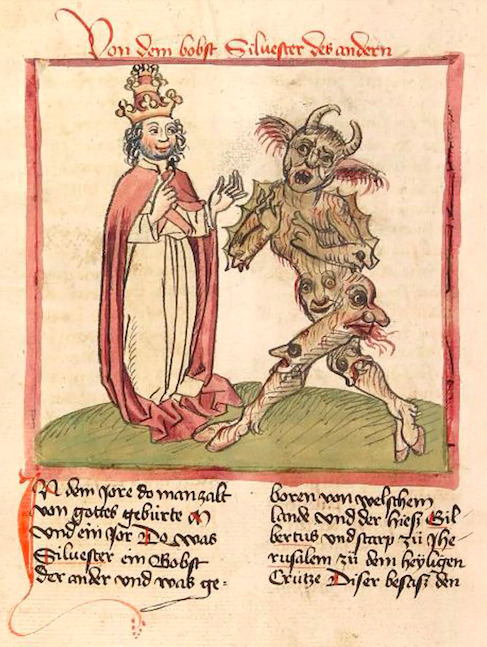 Von dem bobst Siluester des andern
In dem Jore do man zalt
von gottes gebürte M
vnd ein Jor Do was
Siluester ein Bobst
der ander vnd was ge=
boren von welschem
lande vnd der hiesz Gil
bertus vnd starp zü Jhe-
rusalem zü dem heyligen
Crütze Diser besasz den